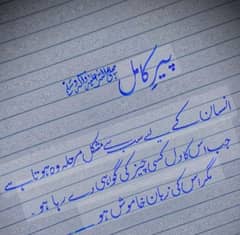 پیرِ کامل صلی اللہ علیہ وآلہ وسلم
انسان کے لیے سب سے مشکل مرحلہ وہ ہوتا ہے
جب اس کا دل کسی چیز کی گواہی دے رہا ہو۔
مگر اس کی زبان خاموش ہو